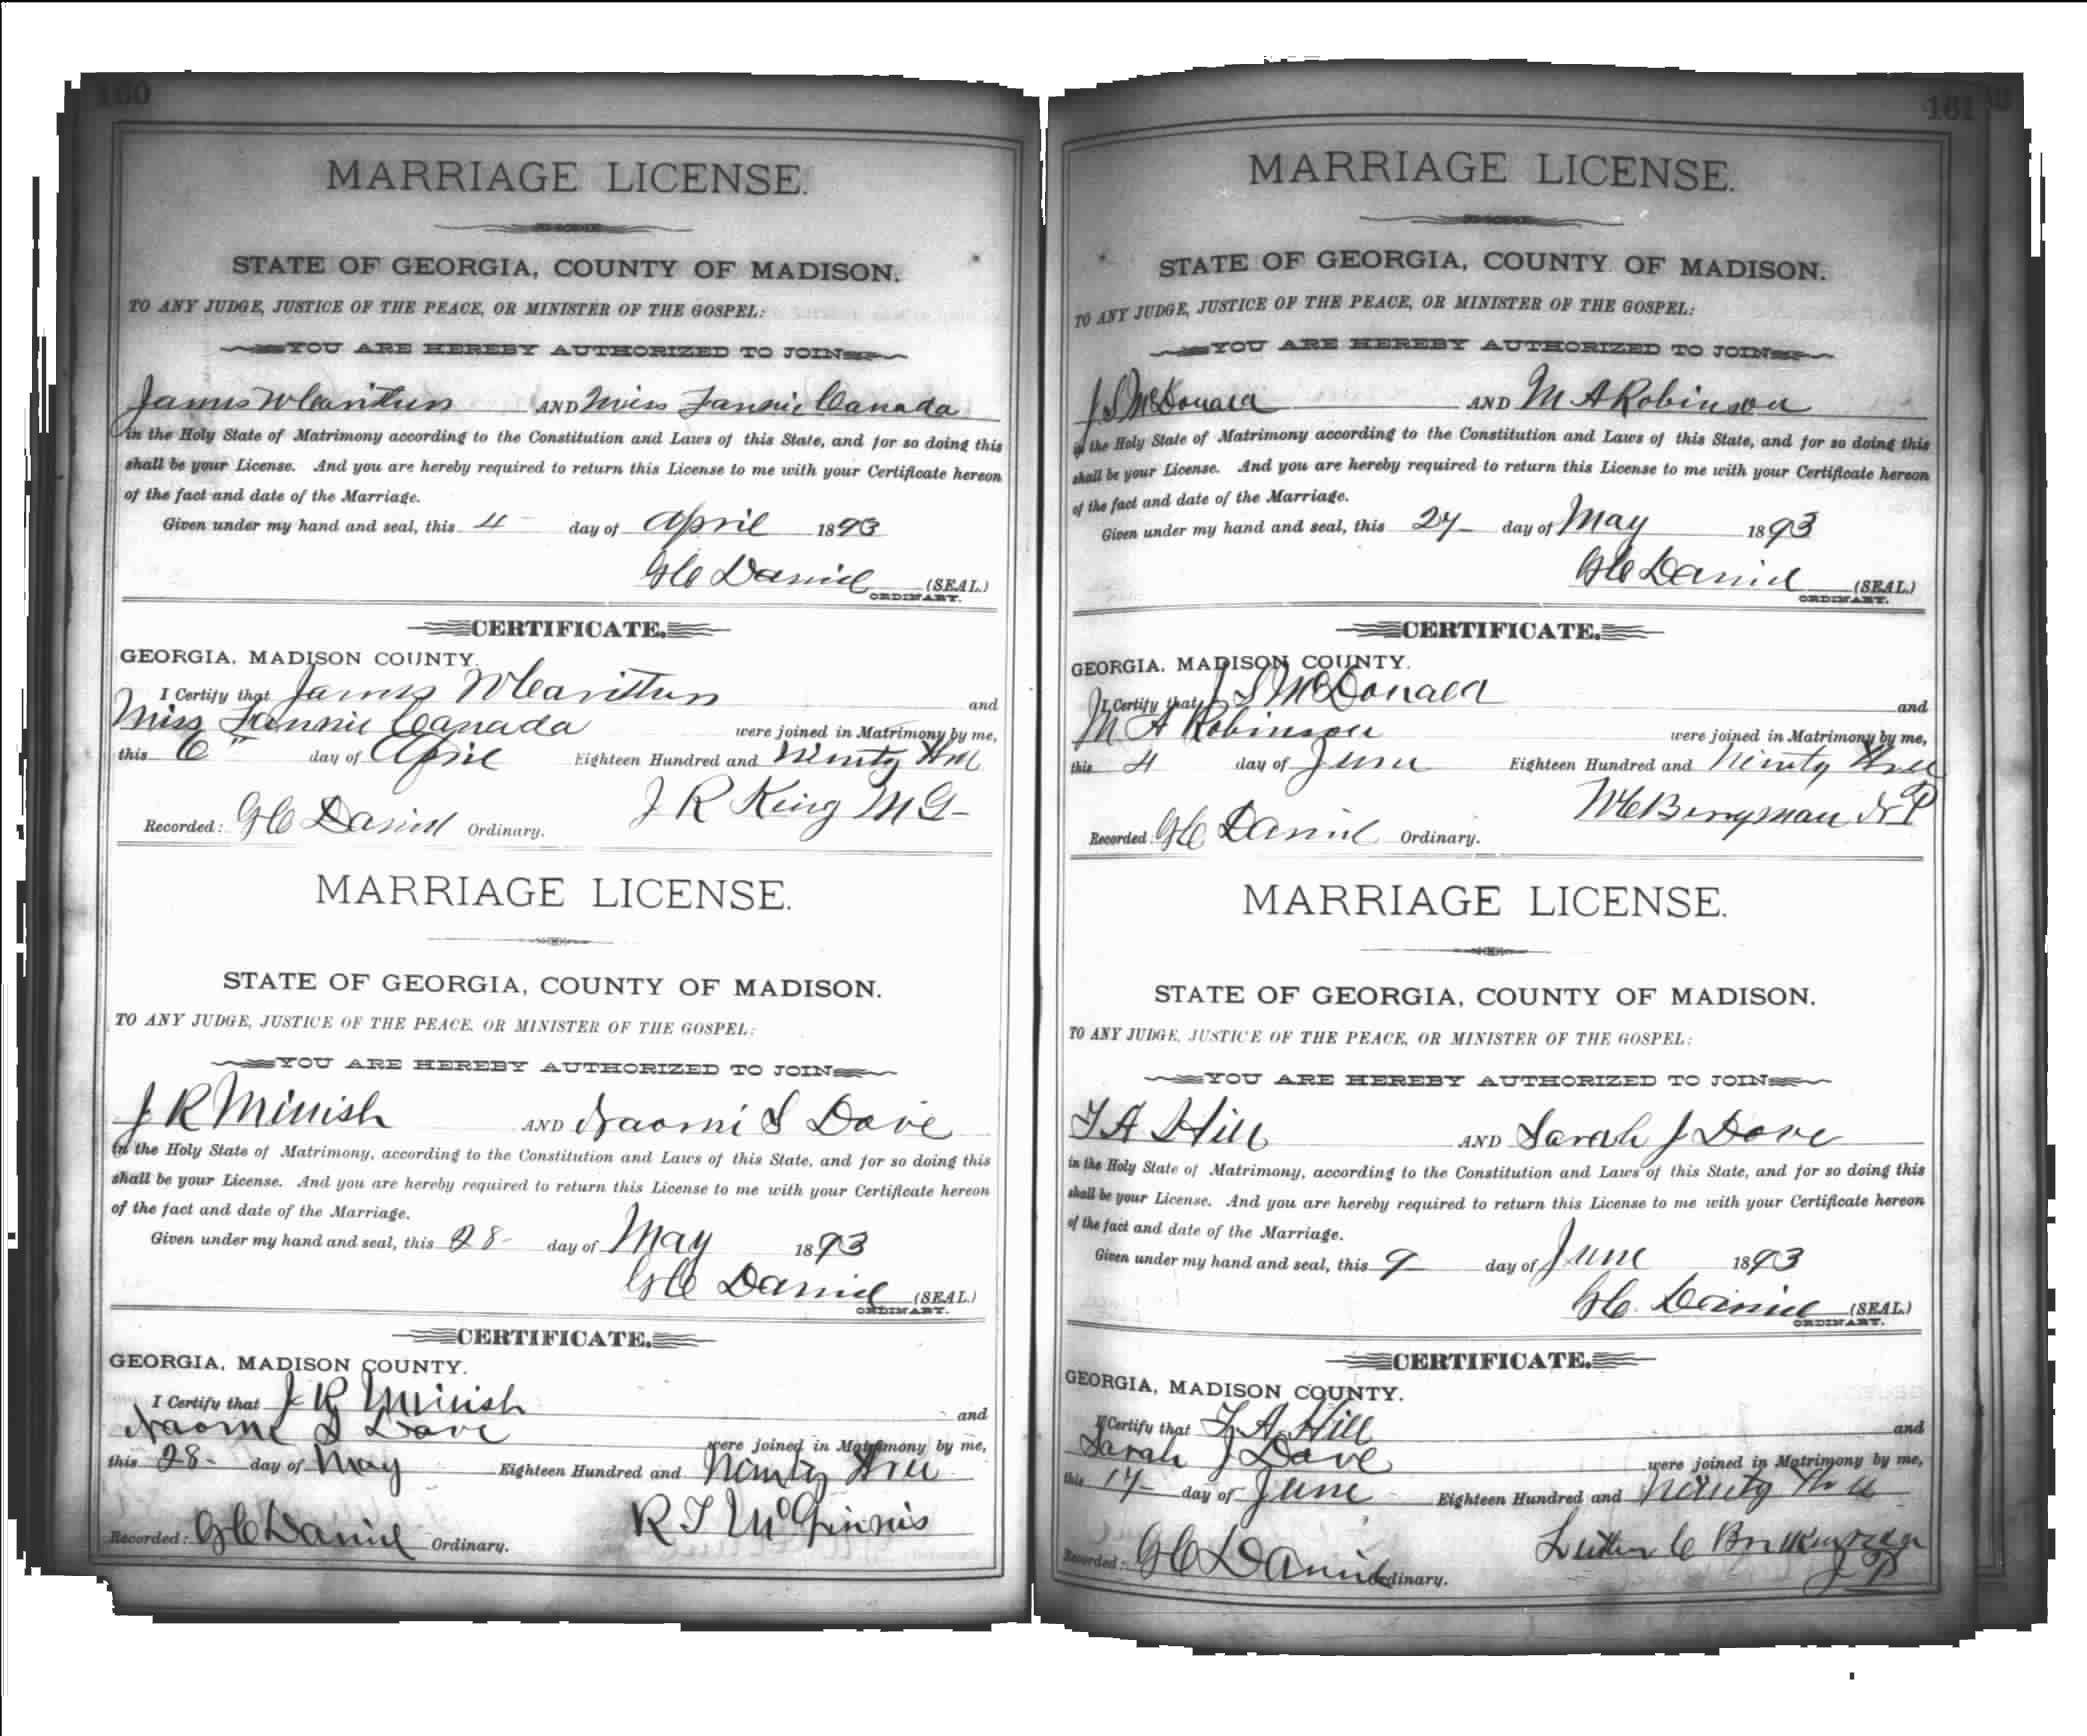 160
MARRIAGE LICENSE.
STATE OF GEORGIA, COUNTY OF MADISON.
TO ANY JUDGE, JUSTICE OF THE PEACE, OR MINISTER OF THE GOSPEL:
YOU ARE HEREBY AUTHORIZED TO JOIN
James W AND Miss Fannie Canada
in the Holy State of Matrimony according to the Constitution and Laws of this State, and for so doing this
shall be your License. And you are hereby required to return this License to me with your Certificate hereon
of the fact and date of the Marriage.
Given under my hand and seal, this 4 day of April 1893
G C Daniel (SEAL.)
ORDINARY.
CERTIFICATE.
GEORGIA, MADISON COUNTY.
I Certify that James W and
Miss Fannie Canada were joined in Matrimony by me,
this 6" day of April Eighteen Hundred and Ninety three
J R King M G
Recorded: G C Daniel Ordinary.
MARRIAGE LICENSE.
STATE OF GEORGIA, COUNTY OF MADISON.
TO ANY JUDGE, JUSTICE OF THE PEACE, OR MINISTER OF THE GOSPEL:
YOU ARE HEREBY AUTHORIZED TO JOIN
J R Minish AND Naomi S Dove
in the Holy State of Matrimony, according to the Constitution and Laws of this State, and for so doing this
shall be your License. And you are hereby required to return this License to me with your Certificate hereon
of the fact and date of the Marriage.
Given under my hand and seal, this 28 day of May 1893
G C Daniel (SEAL.)
ORDINARY.
CERTIFICATE.
GEORGIA, MADISON COUNTY.
I Certify that J R Minish and
Naomi S Dove were joined in Matrimony by me,
this 28 day of May Eighteen Hundred and Ninety three
R T McGinnis
Recorded: G C Daniel Ordinary.
161
MARRIAGE LICENSE.
STATE OF GEORGIA, COUNTY OF MADISON.
TO ANY JUDGE, JUSTICE OF THE PEACE, OR MINISTER OF THE GOSPEL:
YOU ARE HEREBY AUTHORIZED TO JOIN
J S McDonald AND M A Robinson
in the Holy State of Matrimony according to the Constitution and Laws of this State, and for so doing this
shall be your License. And you are hereby required to return this License to me with your Certificate hereon
of the fact and date of the Marriage.
Given under my hand and seal, this 27 day of May 1893
G C Daniel (SEAL.)
ORDINARY.
CERTIFICATE.
GEORGIA, MADISON COUNTY.
I Certify that J S McDonald and
M A Robinson were joined in Matrimony by me,
this 4 day of June Eighteen Hundred and Ninety three
W C Berryman N P
Recorded: G C Daniel Ordinary.
MARRIAGE LICENSE.
STATE OF GEORGIA, COUNTY OF MADISON.
TO ANY JUDGE, JUSTICE OF THE PEACE, OR MINISTER OF THE GOSPEL:
YOU ARE HEREBY AUTHORIZED TO JOIN
T A Hill AND Sarah J Dove
in the Holy State of Matrimony, according to the Constitution and Laws of this State, and for so doing this
shall be your License. And you are hereby required to return this License to me with your Certificate hereon
of the fact and date of the Marriage.
Given under my hand and seal, this 9 day of June 1893
G C. Daniel (SEAL.)
ORDINARY.
CERTIFICATE.
GEORGIA, MADISON COUNTY.
I Certify that T A Hill and
Sarah J Dove were joined in Matrimony by me,
this 17 day of June Eighteen Hundred and Ninety three
Luther C
J P
Recorded: G C Daniel Ordinary.